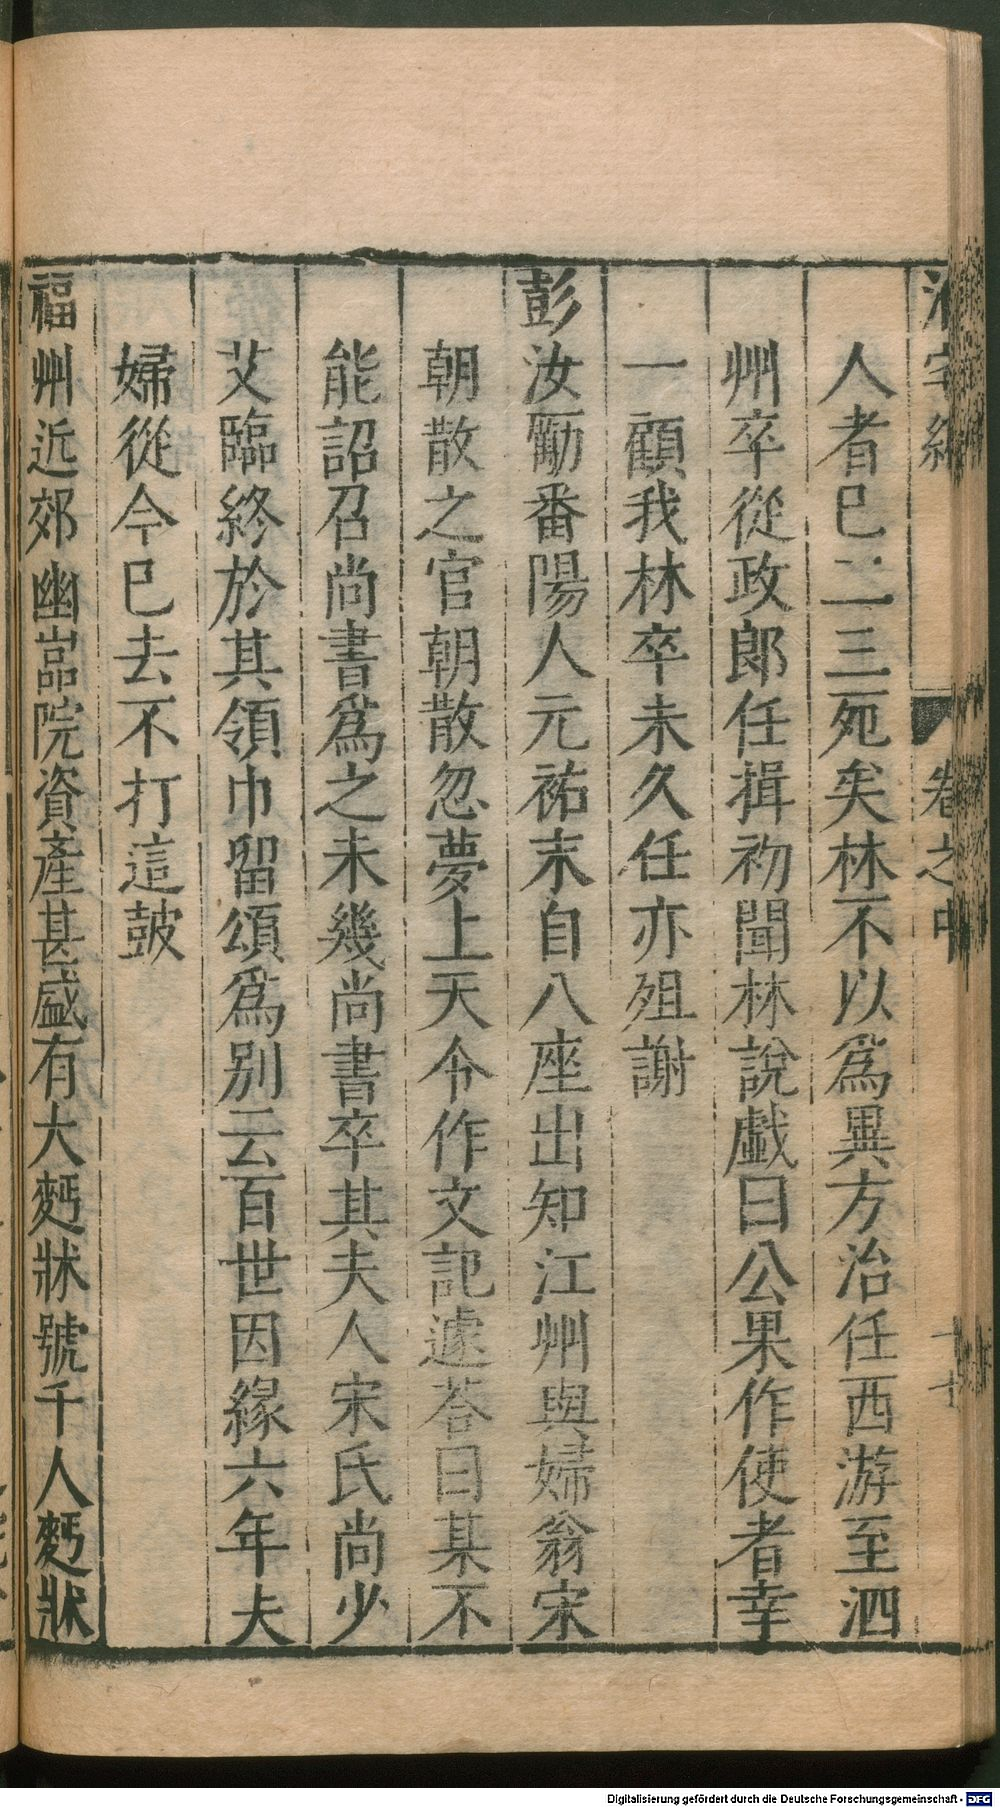 卷之中
人者巳二三死矣林不以為異方治任西游至泗
州卒從政郎任揖初聞林說戲曰公果作使者幸
一顧我林卒未久任亦殂謝
彭汝勵番陽人元祐末自八座出知江州與婦翁宋
朝散之官朝散忽夢上天令作文記遽荅曰某不
能詔召尚書爲之未幾尚書卒其夫人宋氏尚少
艾臨終於其領巾留頌爲别云百世因緣六年夫
婦從今巳去不打這鼓
福州近郊幽嵓院資產甚盛有大麫牀號千人麫牀
Digitalisierung gefördert durch die Deutsche Forschungsgemeinschaft - DFG